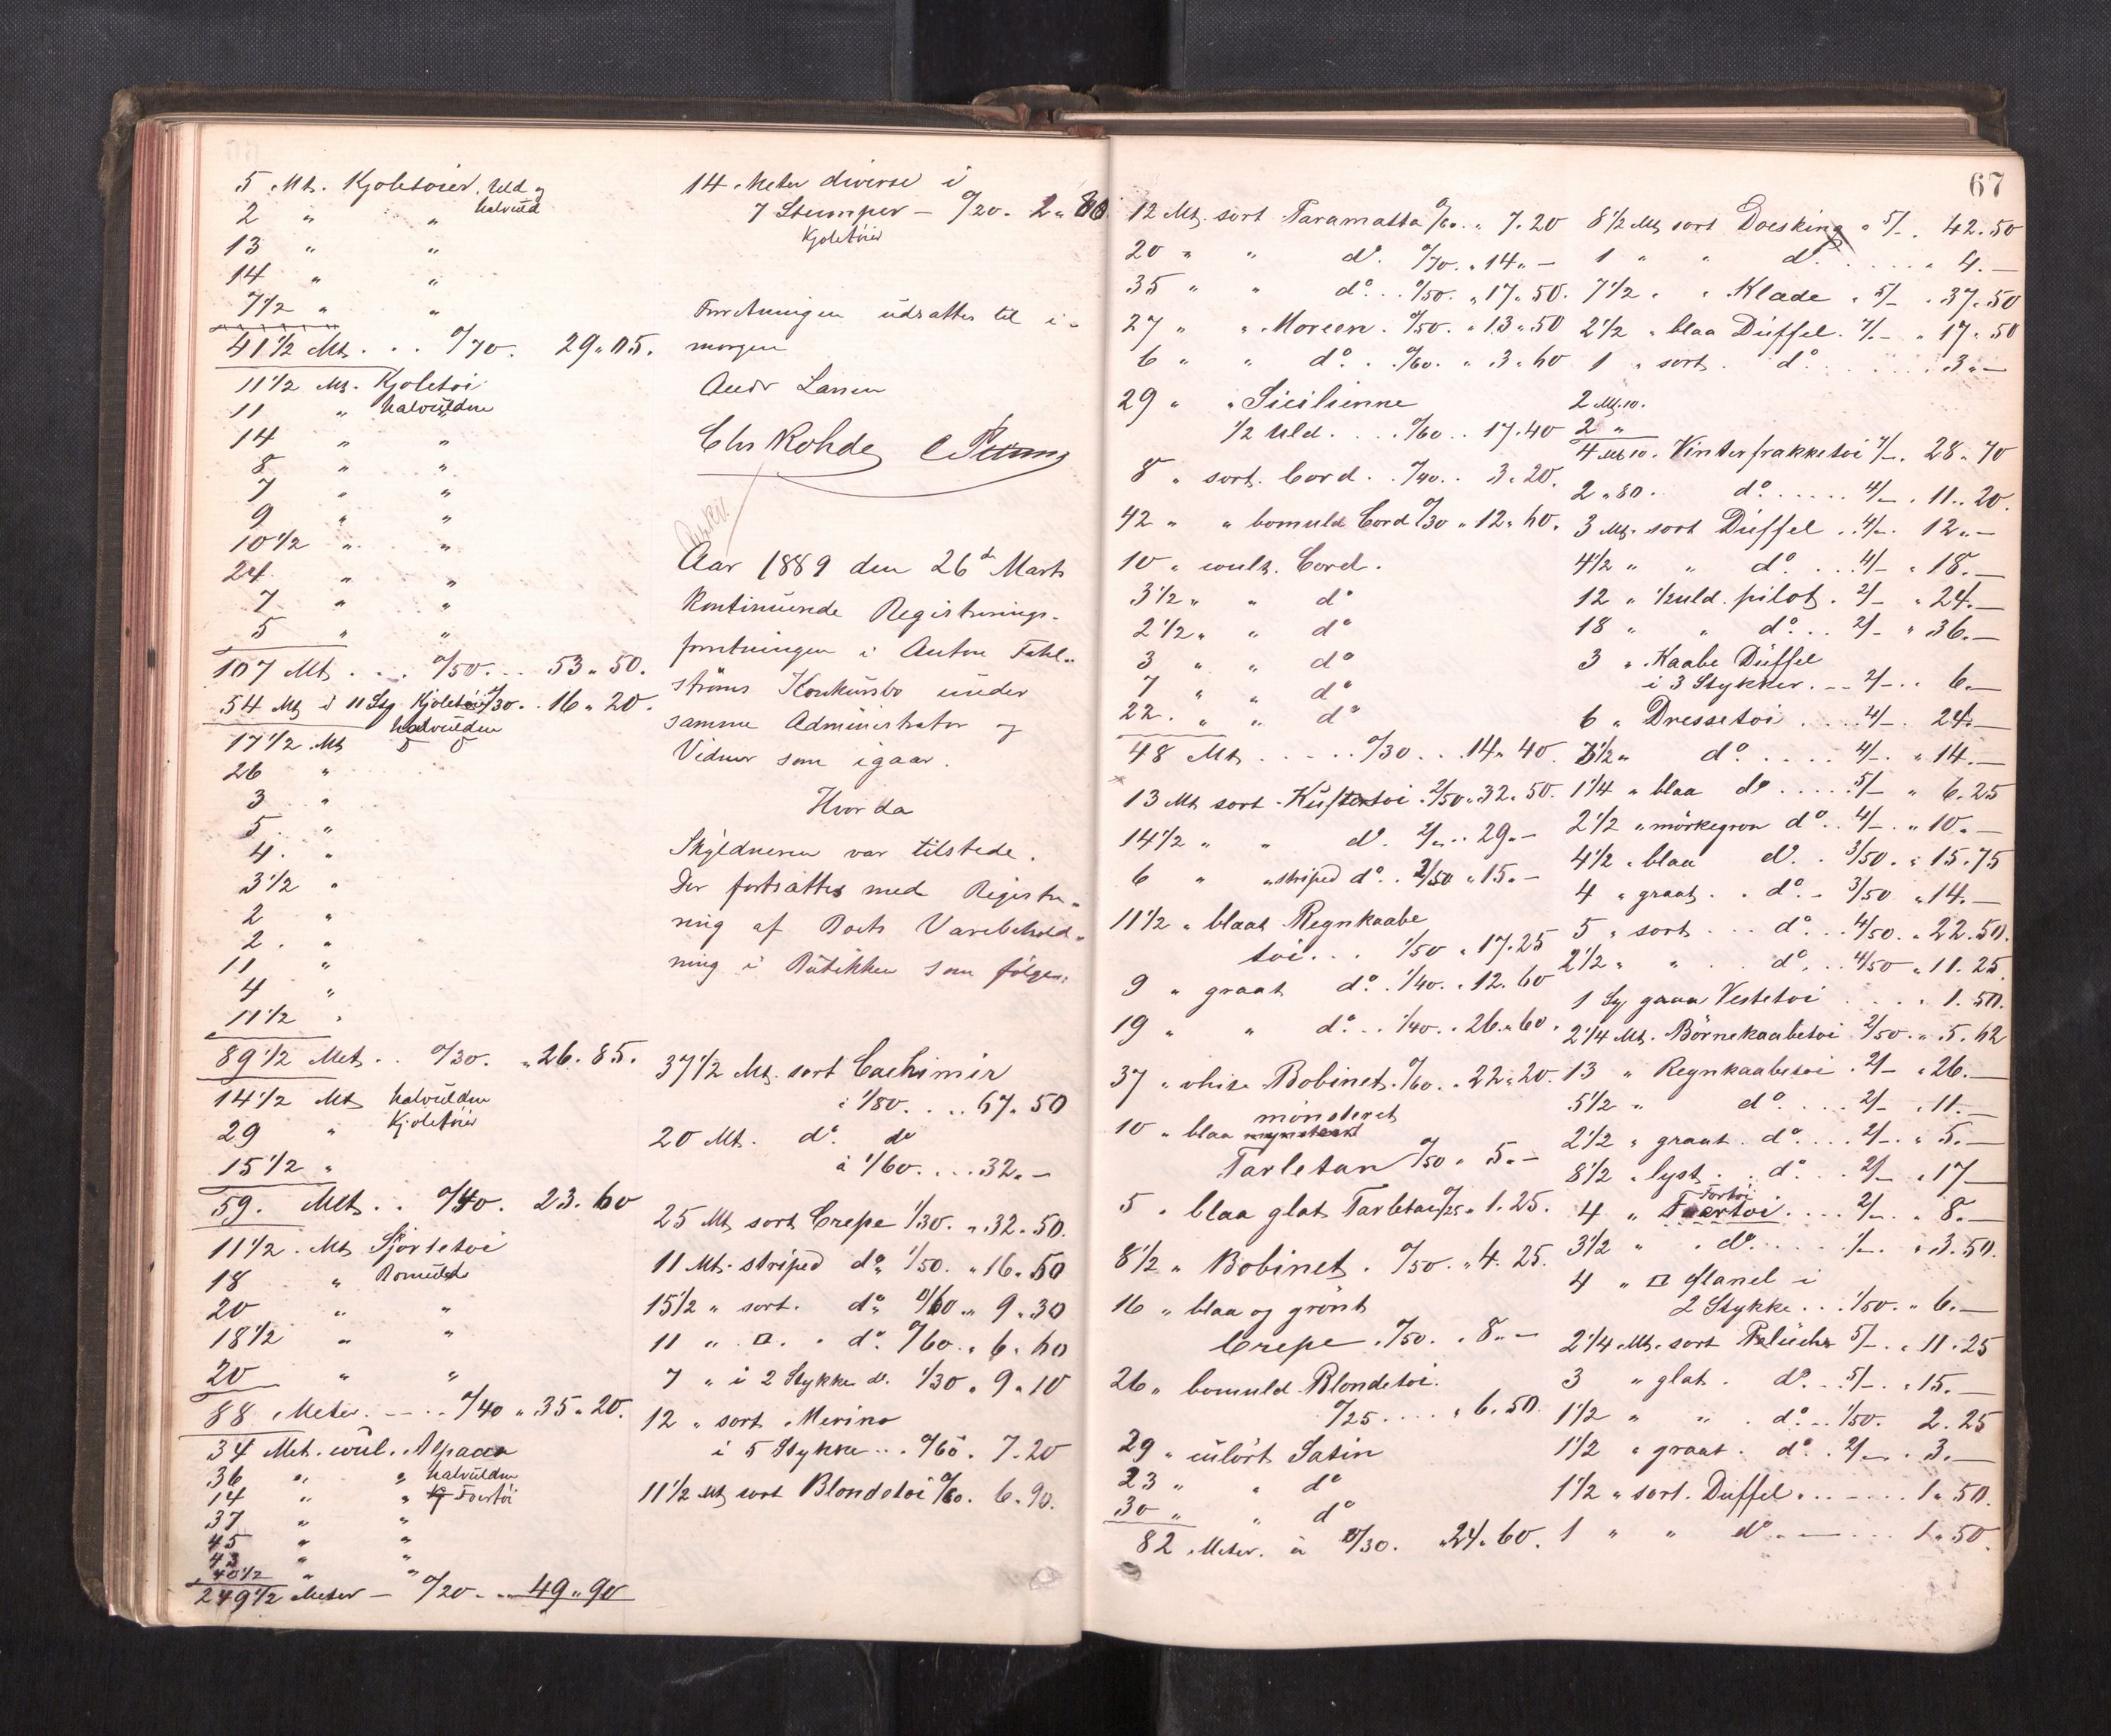 5 Mt. Kjoletoier. Uld og
halvuld
2 " "
13 " "
14 " "
7 1/2 " "
41 1/2 Mt. . . 0/70. 29 " 05.
11 1/2 Mt. Kjoletoi
11 " halvulden
14 " "
8 " "
7 " "
9 " "
10 1/2 " "
24 " "
7 " "
5 " "
107 Mt . . . 0/50 . . . 53 " 50.
54 Mt i 11 St. Kjoletoi 0/30 . . 16 " 20.
halvulden
17 1/2 Mt " "
26 "
3 "
5 "
4 "
3 1/2 "
2 "
2 "
11 "
4 "
11 1/2 "
89 1/2 Met. . 0/30. " 26. 85.
14 1/2 Mt halvulden
29 " Kjoletöier
15 1/2 "
59. Mt. . 0/40. 23. 60
11 1/2 Mt Skjortetoi
18 " Bomuld
20 " "
18 1/2 " "
20 " "
88 Meter. - - 0/40 " 35 " 20.
34 Met. cöul. Alpacca
36 " " halvulden
14 " " Kj Foertöi
37 " "
45 " "
43 " "
40 1/2 " "
249 1/2 Meter - 0/20 - " 49 " 90
14 Meter diverse i
7 Stumper - 0/20. 2 " 80.
Kjoletöier
Forretningen udsattes til i-
morgen
Andr Larsen
Chr Rohde
Aar 1889 den 26de Marts
kontinuerede Registrerings-
forretningen i Anton Fahl-
ströms Konkursbo under
samme Administrator og
Vidner som igaar.
Hvorda
Skyldneren var tilstede.
Der fortsattes med Registre-
ring af Boets Varebehold-
ning i Butikken som følger:
37 1/2 Mt. sort Cachimir
à 1/80. . . . 67. 50
20 Mt. do. do
à 1/60. . . . 32. -
25 Mt sort Crepe 1/30. " 32. 50.
11 Mt. striped do. 1/50. " 16. 50
15 1/2 " sort. do. 0/60 " 9. 30
11 " □. " do. 0/60. " 6. 60
7 " i 2 Stykker do. 1/30 " 9 " 10
12 " sort Merino
i 5 Stykker . . . 0/60. 7. 20
11 1/2 Mt sort Blondetöi 0/60. 6. 90.
67
12 Mt. sort Paramatta 0/60. " 7. 20
20 " " do. 0/70. " 14 " -
35 " " do. . . 0/50. " 17 " 50.
27 " " Moreen. 0/50. " 13 " 50
6 " " do. . 0/60. " 3 " 60
29 " " Sicilienne
1/2 Uld. . . . 0/60 . . 17. 40
8 " sort. Cord . . 0/40. . 3. 20.
42 " " bomuld Cord 0/30 " 12. 60.
10 " coult. Cord.
3 1/2 " " do
2 1/2 " " do
3 " " do
7 " " do
22. " " do
48 Mt . . . - . . 0/30 . . . 14 " 40.
13 Mt sort Kustertoi . 2/50 " 32. 50.
14 1/2 " " do. 2/- . . 29. -
6 " " striped do. . 2/50 " 15. -
11 1/2 " blaat Regnkaabe
toi. . . 1/50 " 17. 25
9 " graat do. . 1/40. " 12. 60
19 " " do. . . 1/40. . 26. 60.
37 " white Bobinet. 0/60. . 22 " 20.
10 " blaa mönsteret
Tarletan 0/50 " 5. -
5 " blaa glat Tarletan 0/25 " 1. 25.
8 1/2 " Bobinet. 0/50. " 4. 25.
16 " blaa og grönt
Crepe . 0/50. " 8. -
26 " bomuld Blondetoi.
0/25 . . . . " 6. 50.
29 " culört Satin
23 " " do
30 " " do
82 Meter. à 0/30. " 24. 60.
8 1/2 Mt sort Doeskin " 5/- . 42. 50
1 " " do. . . . . 4. -
7 1/2 " " Klæde " 5/- . 37. 50
2 1/2 " blaa Düffel. 7/- " 17. 50
1 " sort. do. . . . . . 3 " -
2 Mt. 10.
2 "
4 Mt 10. Vinterfrakketoi 7/-. 28. 70
2 " 80. do. . . . . 4/-. 11. 20.
3 Mt. sort Düffel. . 4/-. 12. -
4 1/2 " " do. . . 4/- " 18. -
12 " 1/2 uld. pilot. 2/- " 24. -
18 " " do. . . 2/- " 36. -
3 " Kaabe Düffel
i 3 Stykker. - - 2/- . . 6. -
6 " Dressetoi . . . 4/- . 24. -
3 1/2 " do. . . . 4/-. " 14. -
1 1/4 " blaa do. . . 5/- " 6. 25
2 1/2 " mörkegron do. . 4/- . " 10. -
4 1/2 " blaa do. . 3/50. " 15. 75
4 " graat. . do. - 3/50 " 14. -
5 " sort . . . do. . . 4/50. " 22. 50.
2 1/2 " " . do. . . 4/50 " 11. 25.
1 St graa Vestetoi . . . . 1. 50.
2 1/4 Mt. Börnekaabetoi 2/50. " 5. 62
13 " Regnkaabetoi . 2/- " 26. -
5 1/2 " do. . . . 2/- " 11. -
2 1/2 " graat. do. . . . 2/- . " 5. -
8 1/2 " lyst. . do. . . 2/- " 17 -
4 " Foertoi Fortoi. . . . 2/-. " 8. -
3 1/2 " " do. . . . . 1/-. " 3. 50.
4 " □ flanel i
2 Stykke. . . 1/50. " 6. -
2 1/4 Mt. sort Plüche 5/-. " 11. 25
3 " glat. do. . . 5/-. " 15. -
1 1/2 " " . do. . . 1/50. 2. 25
1 1/2 " graat. do. . 2/- . . 3. -
1 1/2 " sort. Düffel. . - . . . 1. 50.
1 " " do. . - . . . 1. 50.